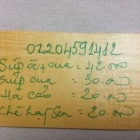 01204591412
Súp cây cua = 42.000
Súp cua = 30.000
Há cảo = 20.000
Chè hạt sen = 20.000